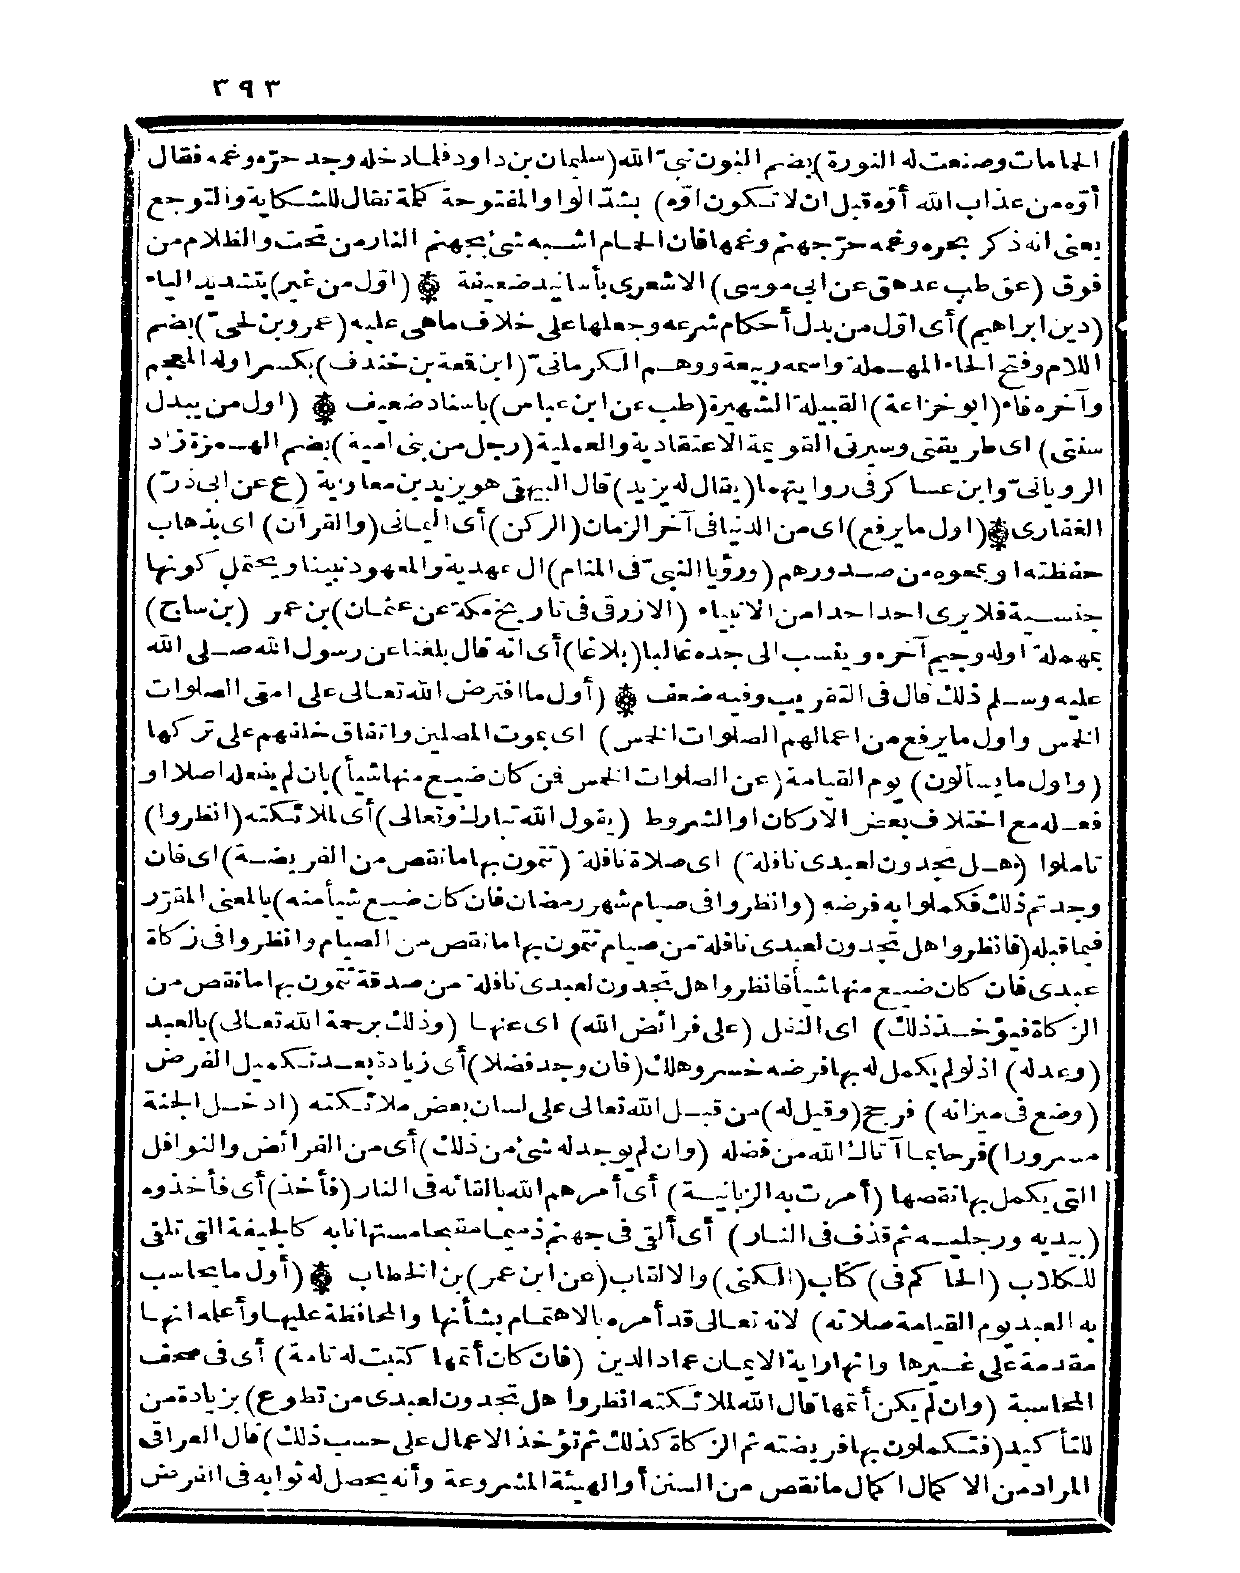 ٣٩٣
الحامات وصنعت له النورة)بضم النون نبيّ الله(سليمان بن داود فلما دخله وجد حرّه وغمه فقال
أوّه من عذاب الله أوّه قبل ان لا تكون اوّه) بشدّ الواو المفتوحة كلمة تقال للشكاية والتوجع
يعنى انه ذكر بحره وغمه حرّ جهنم وغمها فان الحمام اشبه شئ بجهنم النار من تحت والظلام من
فوق (عق طب عد هق عن ابى موسى) الاشعرى بأسانيد ضعيفة ۞ (اوّل من غير)بتشديد الياء
(دين ابراهيم)أى اوّل من بدل أحكام شرعه وجعلها على خلاف ماهى عليه(عمرو بن لحىّ)بضم
اللام وفتح الحاء المهملة واسمه ربيعة ووهم الكرمانىّ(ابن قمعة بن خندف)بكسر اوله المعجم
وآخره فاء(ابو خزاعة)القبيلة الشهيرة(طب عن ابن عباس)باسناد ضعيف ۞ (اول من يبدل
سنتى) اى طريقتى وسيرتى القويمة الاعتقادية والعملية(رجل من بنى امية)بضم الهمزة زاد
الرويانىّ وابن عساكر فى روايتهما(يقال له يزيد)قال البيهقى هو يزيد بن معاوية (ع عن ابى ذرّ)
الغفارى۞(اول ما يرفع)اى من الدنيا فى آخر الزمان(الركن)أى اليمانى(والقرآن) اى بذهاب
حفظته او بمحوه من صدورهم (ورؤيا النبىّ فى المنام)ال عهدية والمعهود نبينا ويحتمل كونها
جنسية فلا يرى احد احدا من الانبياء (الازرقى فى تاريخ مكة عن عثمان)بن عمر (بن ساج)
بمهملة اوله وجيم آخره وينسب الى جده غالبا(بلاغا)أى انه قال بلغنا عن رسول الله صلى الله
عليه وسلم ذلك قال فى التقريب وفيه ضعف ۞ (أول ما افترض الله تعالى على امتى الصلوات
الخمس واول ما يرفع من اعمالهم الصلوات الخمس) اى بموت المصلين واتفاق خلفهم على تركها
(واول ما يسألون) يوم القيامة(عن الصلوات الخمس فمن كان ضيع منها شيأ)بان لم يفعله اصلا او
فعله مع اختلاف بعض الاركان او الشروط (يقول الله تبارك وتعالى)أى لملائكته(انظروا)
تاملوا (هل تجدون لعبدى نافلة) اى صلاة نافلة (تتمون بها ما نقص من الفريضة)اى فان
وجدتم ذلك فكملوا به فرضه (وانظروا فى صيام شهر رمضان فان كان ضيع شيأ منه)بالمعنى المقرّر
فيما قبله(فانظروا هل تجدون لعبدى نافلة من صيام تتمون بها ما نقص من الصيام وانظروا فى زكاة
عبدى فان كان ضيع منها شيأ فانظروا هل تجدون لعبدى نافلة من صدقة تتمون بها ما نقص من
الزكاة فيؤخذ ذلك) اى النفل (على فرائض الله) اى عنها (وذلك برحمة الله تعالى)بالعبد
(وعدله) اذ لو لم يكمل له بها فرضه خسر وهلك(فان وجد فضلا)أى زيادة بعد تكميل الفرض
(وضع فى ميزانه) فرجح(وقيل له)من قبل الله تعالى على لسان بعض ملائكته (ادخل الجنة
مسرورا)فرحا بما آتاك الله من فضله (وان لم يوجد له شئ من ذلك)أى من الفرائض والنوافل
التى يكمل بها نقصها (أمرت به الزبانية) أى أمرهم الله بالقائه فى النار(فأخذ)أى فأخذوه
(بيديه ورجليه ثم قذف فى النار) أى ألقى فى جهنم ذميما مقبحا مستهانا به كالجيفة التى تلقى
للكلاب (الحاكم فى) كتاب(الكنى)والالقاب(عن ابن عمر)بن الخطاب ۞ (أول ما يحاسب
به العبد يوم القيامة صلاته) لانه تعالى قد أمره بالاهتمام بشأنها والمحافظة عليها وأعلمه انها
مقدمة على غيرها وانها راية الايمان عماد الدين (فان كان أتمها كتبت له تامة) أى فى صحف
المحاسبة (وان لم يكن أتمها قال الله لملائكته انظروا هل تجدون لعبدى من تطوع)بزيادة من
للتأكيد(فتكملون بها فريضته ثم الزكاة كذلك ثم تؤخذ الاعمال على حسب ذلك)قال العراقى
المراد من الاكمال اكمال ما نقص من السنن أو الهيئة المشروعة وأنه يحصل له ثوابه فى الفرض